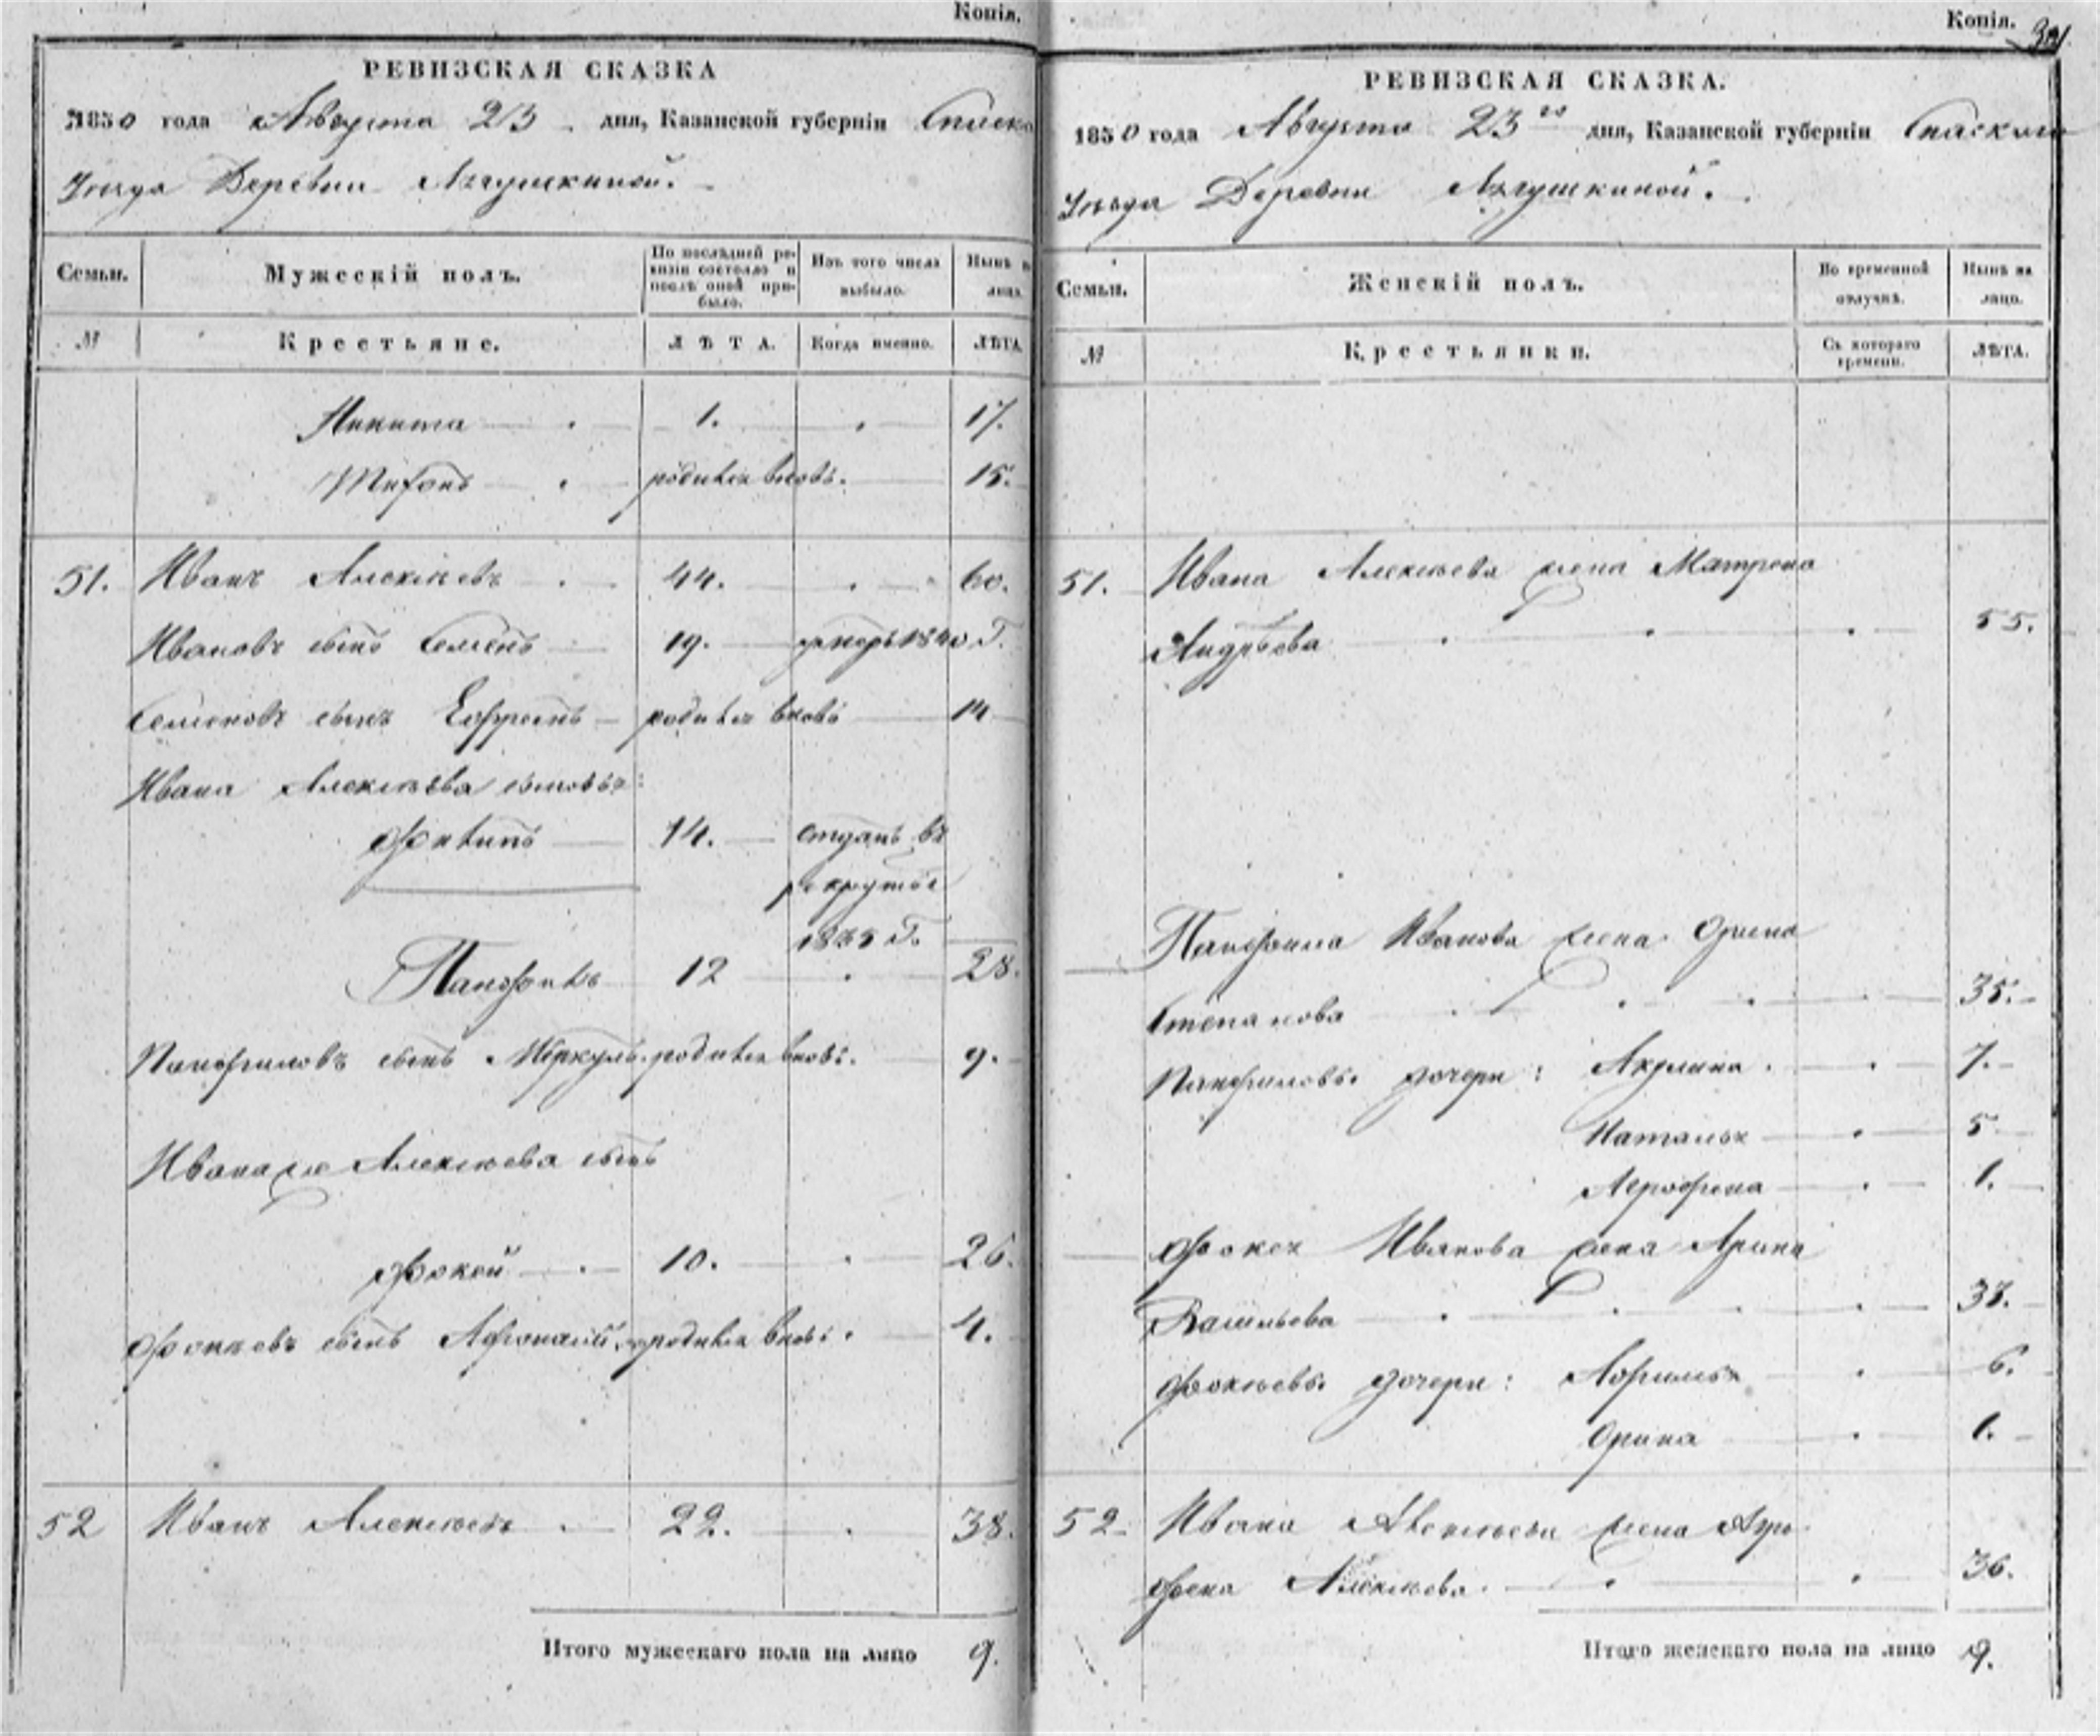 Копія.
РЕВИЗСКАЯ СКАЗКА
1850 года Августа 23 дня, Казанской губерніи Спаско
Уѣзда Деревни
Семьи.
Мужескій полъ.
По послѣдней ре-
визіи состояло и
послѣ оной при-
было.
Изъ того числа
выбыло.
Нынѣ н
лицо
№
Крестьяне.
ЛѢТА.
Когда именно.
ЛѢТА
Никита 1. 17.
родился вновь. 15.
51. Иванъ Алексѣевъ 44. 60.
Ивановъ сынъ Семёнъ 19. умеръ 1840 Г.
Семеновъ сынъ Ефремъ родился вновь 14
Ивана Алексѣева сыновья:
Филипъ 14. отданъ въ
рекруты
Г.
Панфилъ 12 28.
Панфиловъ сынъ Меркулъ родился вновь. 9.
Ивана же Алексѣева сынъ
Фокей 10. 26.
Фокѣевъ сынъ Афонасій родился вновь. 4.
52 Иванъ Алексѣевъ 22. 38.
Итого мужескаго пола на лицо 9.
Копія.
РЕВИЗСКАЯ СКАЗКА.
1850 года Августа 23го дня, Казанской губерніи Спаскаго
Уѣзда Деревни
Семьи.
Женскій полъ.
Во временной
отлучкѣ.
Нынѣ на
лицо.
№
Крестьянки.
Съ котораго
времени.
ЛѢТА.
51. Ивана Алексѣева жена Матрена
Андрѣева 55.
Панфила Иванова жена Орина
Степанова 35.
Панфиловы дочери: Акулина 7.
Наталья 5
1.
Фокея Иванова жена Арина
Васильева
Фокѣевы дочери: 6.
Орина 1.
52 Ивана Алексѣева жена Агро
фена Алексѣева. 36.
Итого женскаго пола на лицо 9.